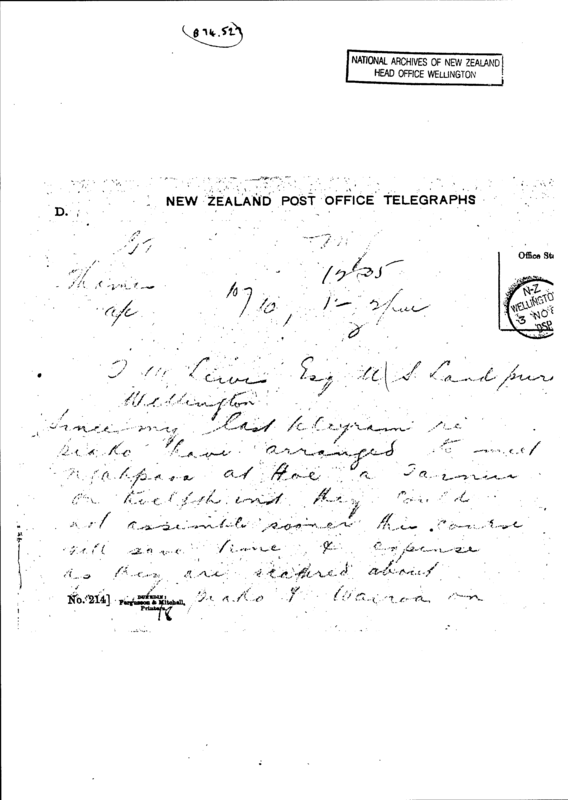 (B74.527)
NATIONAL ARCHIVES OF NEW ZEALAND
HEAD OFFICE WELLINGTON
NEW ZEALAND POST OFFICE TELEGRAPHS
D.
Office Sta
12 35
Thames
a/c
N-Z
WELLINGTO
3 NO
DSP
Lewis Esq U/S Land pur
Wellington
Since my last telegram re
Piako have arranged to meet
at Hoe a Tarnui
on twelfth inst they could
not assemble sooner this course
will save time & expense
as they are scatered about
Piako & Wairoa on
No. 214]
DUNEDIN:
Fergusson & Mitchell,
Printers,